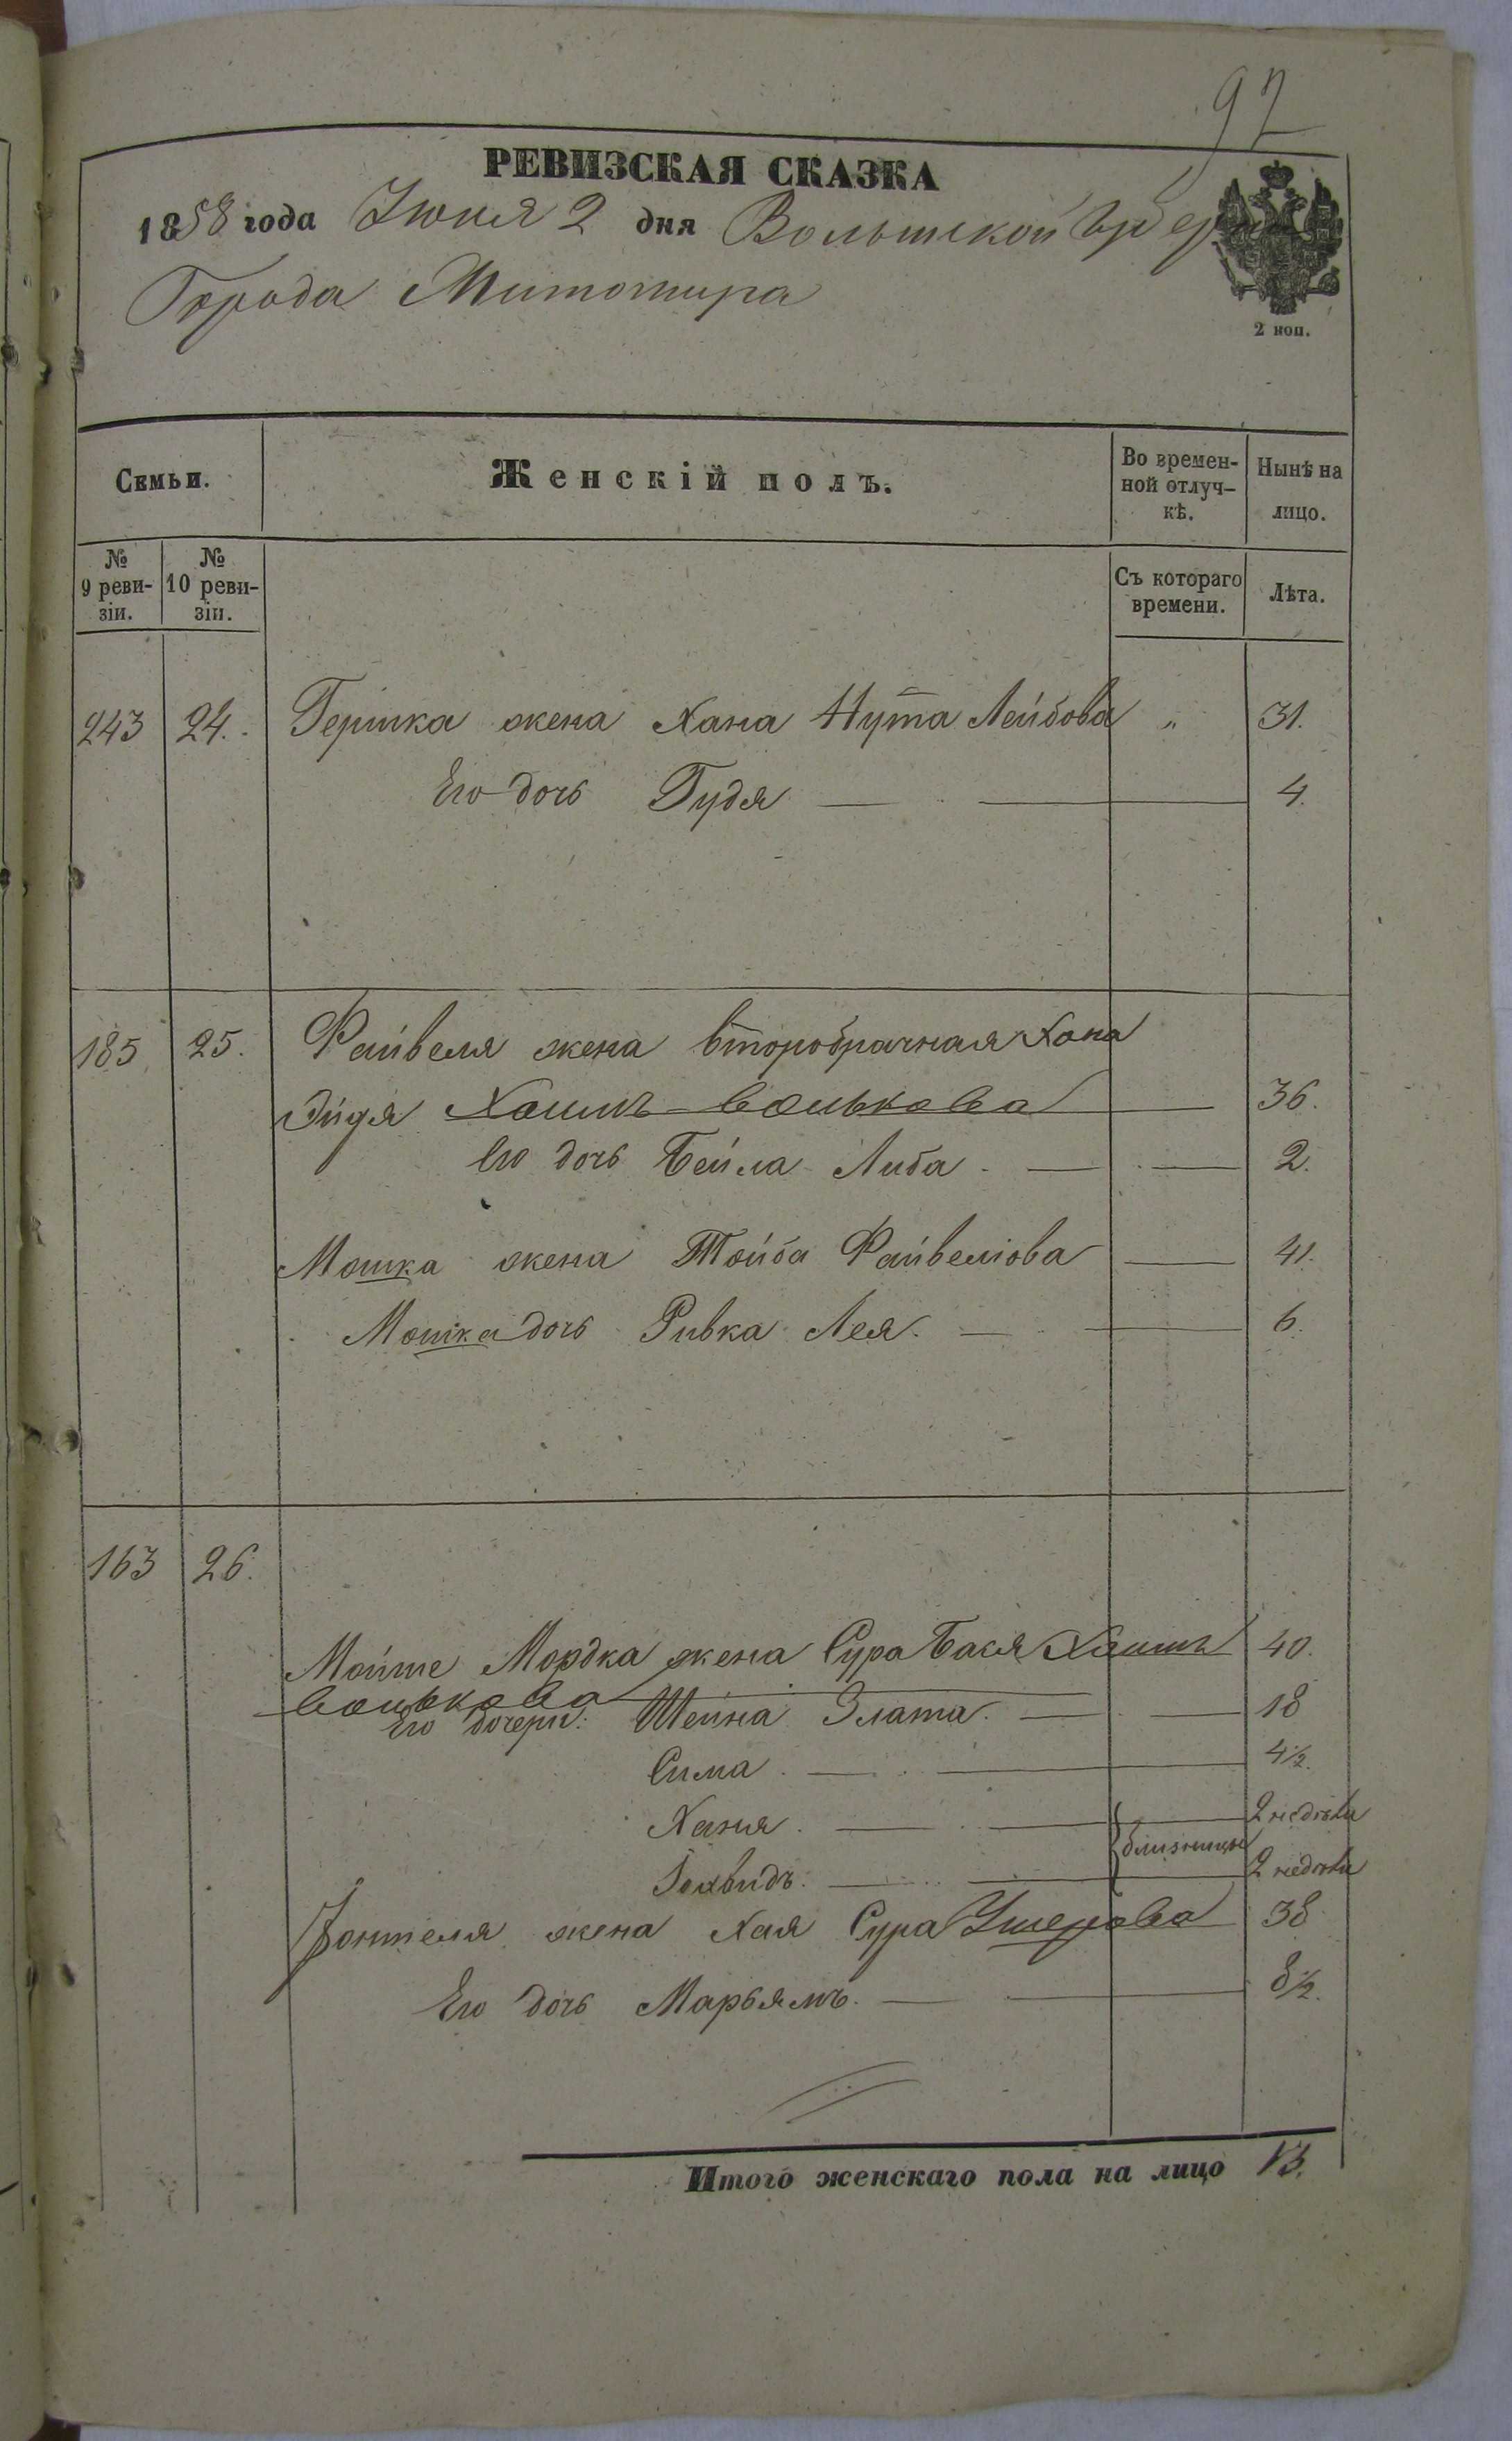 97
РЕВИЗСКАЯ СКАЗКА
1858 года Июня 2 дня Волынской Губерніи
Города Житомира
2 коп.
Семьи.
Женскій полъ.
Во времен-
ной отлуч-
кѣ.
Нынѣ на
лицо.
№
9 реви-
зіи.
№
10 реви-
зіи.
Съ котораго
времени.
Лѣта.
243 24. Гершка жена Хана Нута Лейбова " 31.
Его дочь Гудя 4.
185 25. Файвеля жена второбрачная Хана
Эйдя Хаимъ-Волькова 36.
Его дочь Бейла Либа 2.
Мошка жена Тойба Файвелiова 41.
Мошка дочь Ривка Лея. 6.
163 26.
Мойше Мордка жена Сура Бася Хаимъ 40.
Волькова
Его дочери: Шейна Злата. 18
Сима 4½.
Ханя. 2 недѣли
близницы
2 недѣли
жена Хая Сура Ушерова 38
Его дочь Марьямъ. 8½.
Итого женскаго пола на лицо 13.